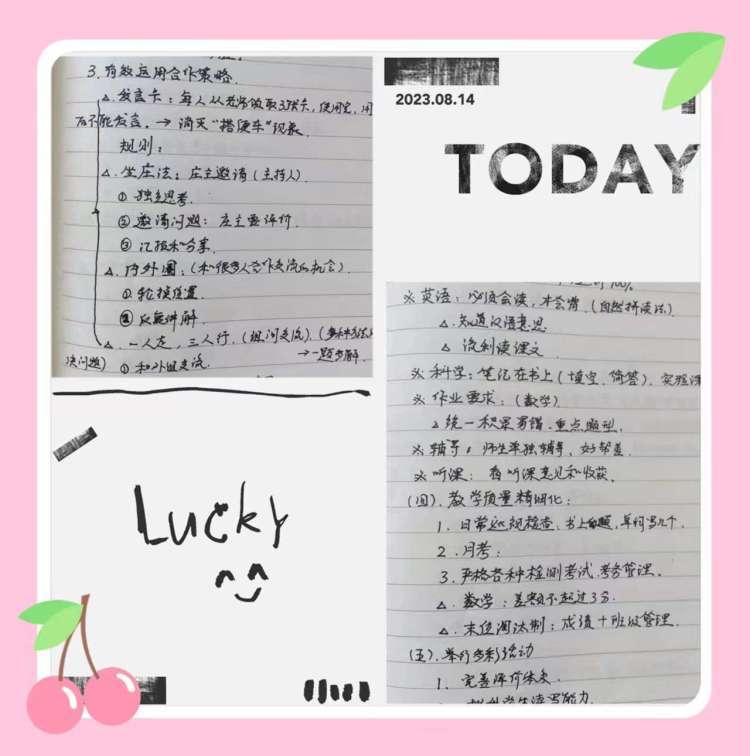 3.有效运用合作策略.
△.发言卡：每人从老师领取3张卡，使用完，用
后不能发言.→消灭"搭便车"现象.
规则：
△.坐庄法：庄主邀请（主持人）.
①独立思考.
②邀请问题：庄主要评价.
③汇报和分享.
△.内外圈：（和很多人合作交流的机会）.
①轮换位置.
②反复讲解.
△.一人走，三人行.（组间交流）
→一题多解.
决问题）①和外组交流.
2023.08.14
TODAY
100%
※英语：必须会读，不会背.（自然拼读法）
△.知道汉语意思
△.流利读课文
※科学：笔记在书上（填空、简答）.实验
※作业要求：（数学）
△统一积累易错.重点题型.
※辅导：师生单独辅导、好帮差.
※听课：有听课意见和收获.
（四）.教学质量精细化：
1.日常巡视检查、书上
2.月考：
3.严格各种检测考试.考务管理.
△.数学：差额不超过3分.
△.末位淘汰制：成绩+班级管理.
（五）.举行多彩活动
1.完善评价体系.
学生读写能力.
Lucky